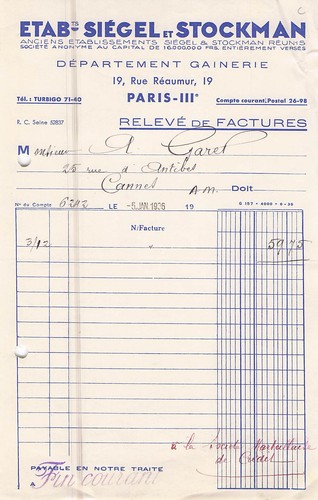 C
ETAB^TS SIÉGEL ET STOCKMAN
ANCIENS ETABLISSEMENTS SIÉGEL & STOCKMAN RÉUNIS
SOCIÉTÉ ANONYME AU CAPITAL DE 16.000.000 FRS. ENTIÈREMENT VERSÉS
DÉPARTEMENT GAINERIE
19, Rue Réaumur, 19
Tél.: TURBIGO 71-40 PARIS-IIIe Compte courant Postal 26-98
R. C. Seine 52837 RELEVÉ DE FACTURES
Monsieur A. Garel
25 rue d'Antibes
Cannes A.M. Doit
No du Compte 6242 LE -5 JAN. 1936 19 G 157 - 4000 - 6-35
N: Facture
3/12 " 5975
à la Société Marseillaise
de Crédit
PAYABLE EN NOTRE TRAITE
Fin courant